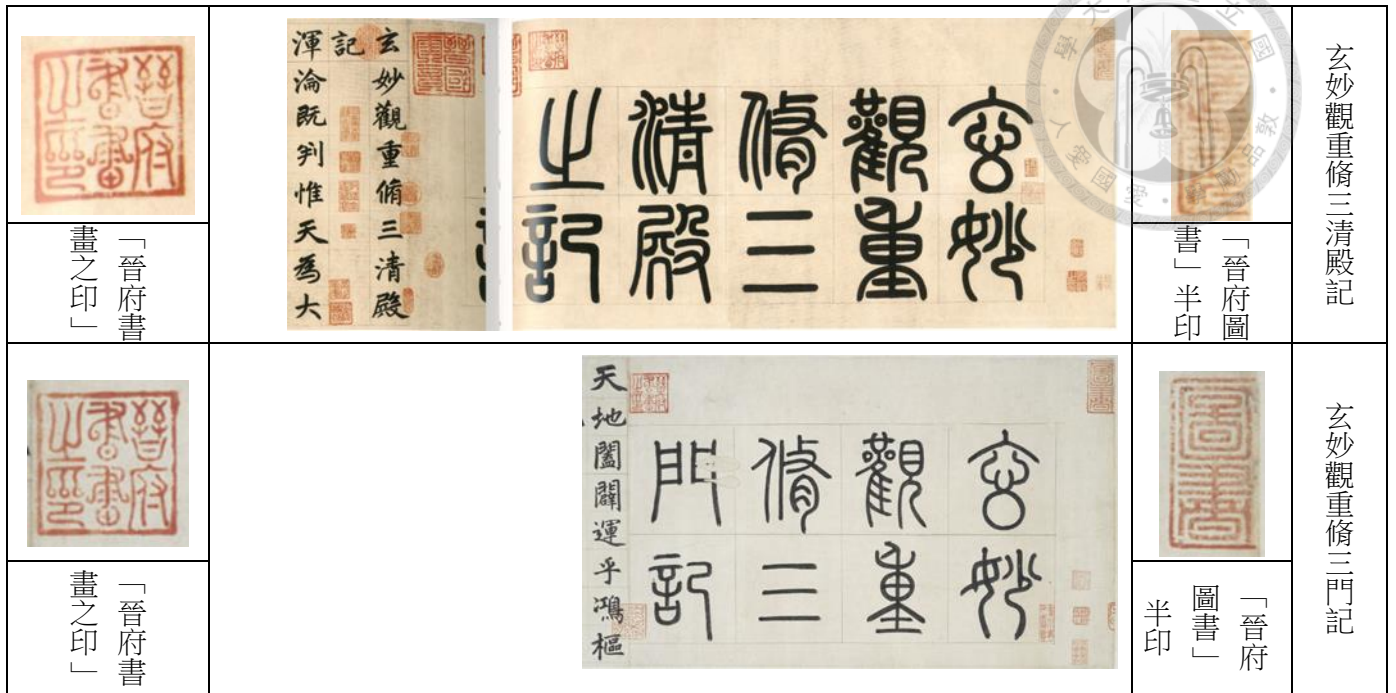 玄妙觀重脩三清殿記
「晉府圖
書」半印
玄妙
觀重
脩三
清殿
之記
玄妙觀重脩三清殿
記
渾淪既判惟天為大
晉府
書畫
之印
「晉府書
畫之印」
玄妙觀重脩三門記
圖書
「晉府
圖書」
半印
玄妙
觀重
脩三
門記
天地闔闢運乎鴻樞
晉府
書畫
之印
「晉府書
畫之印」